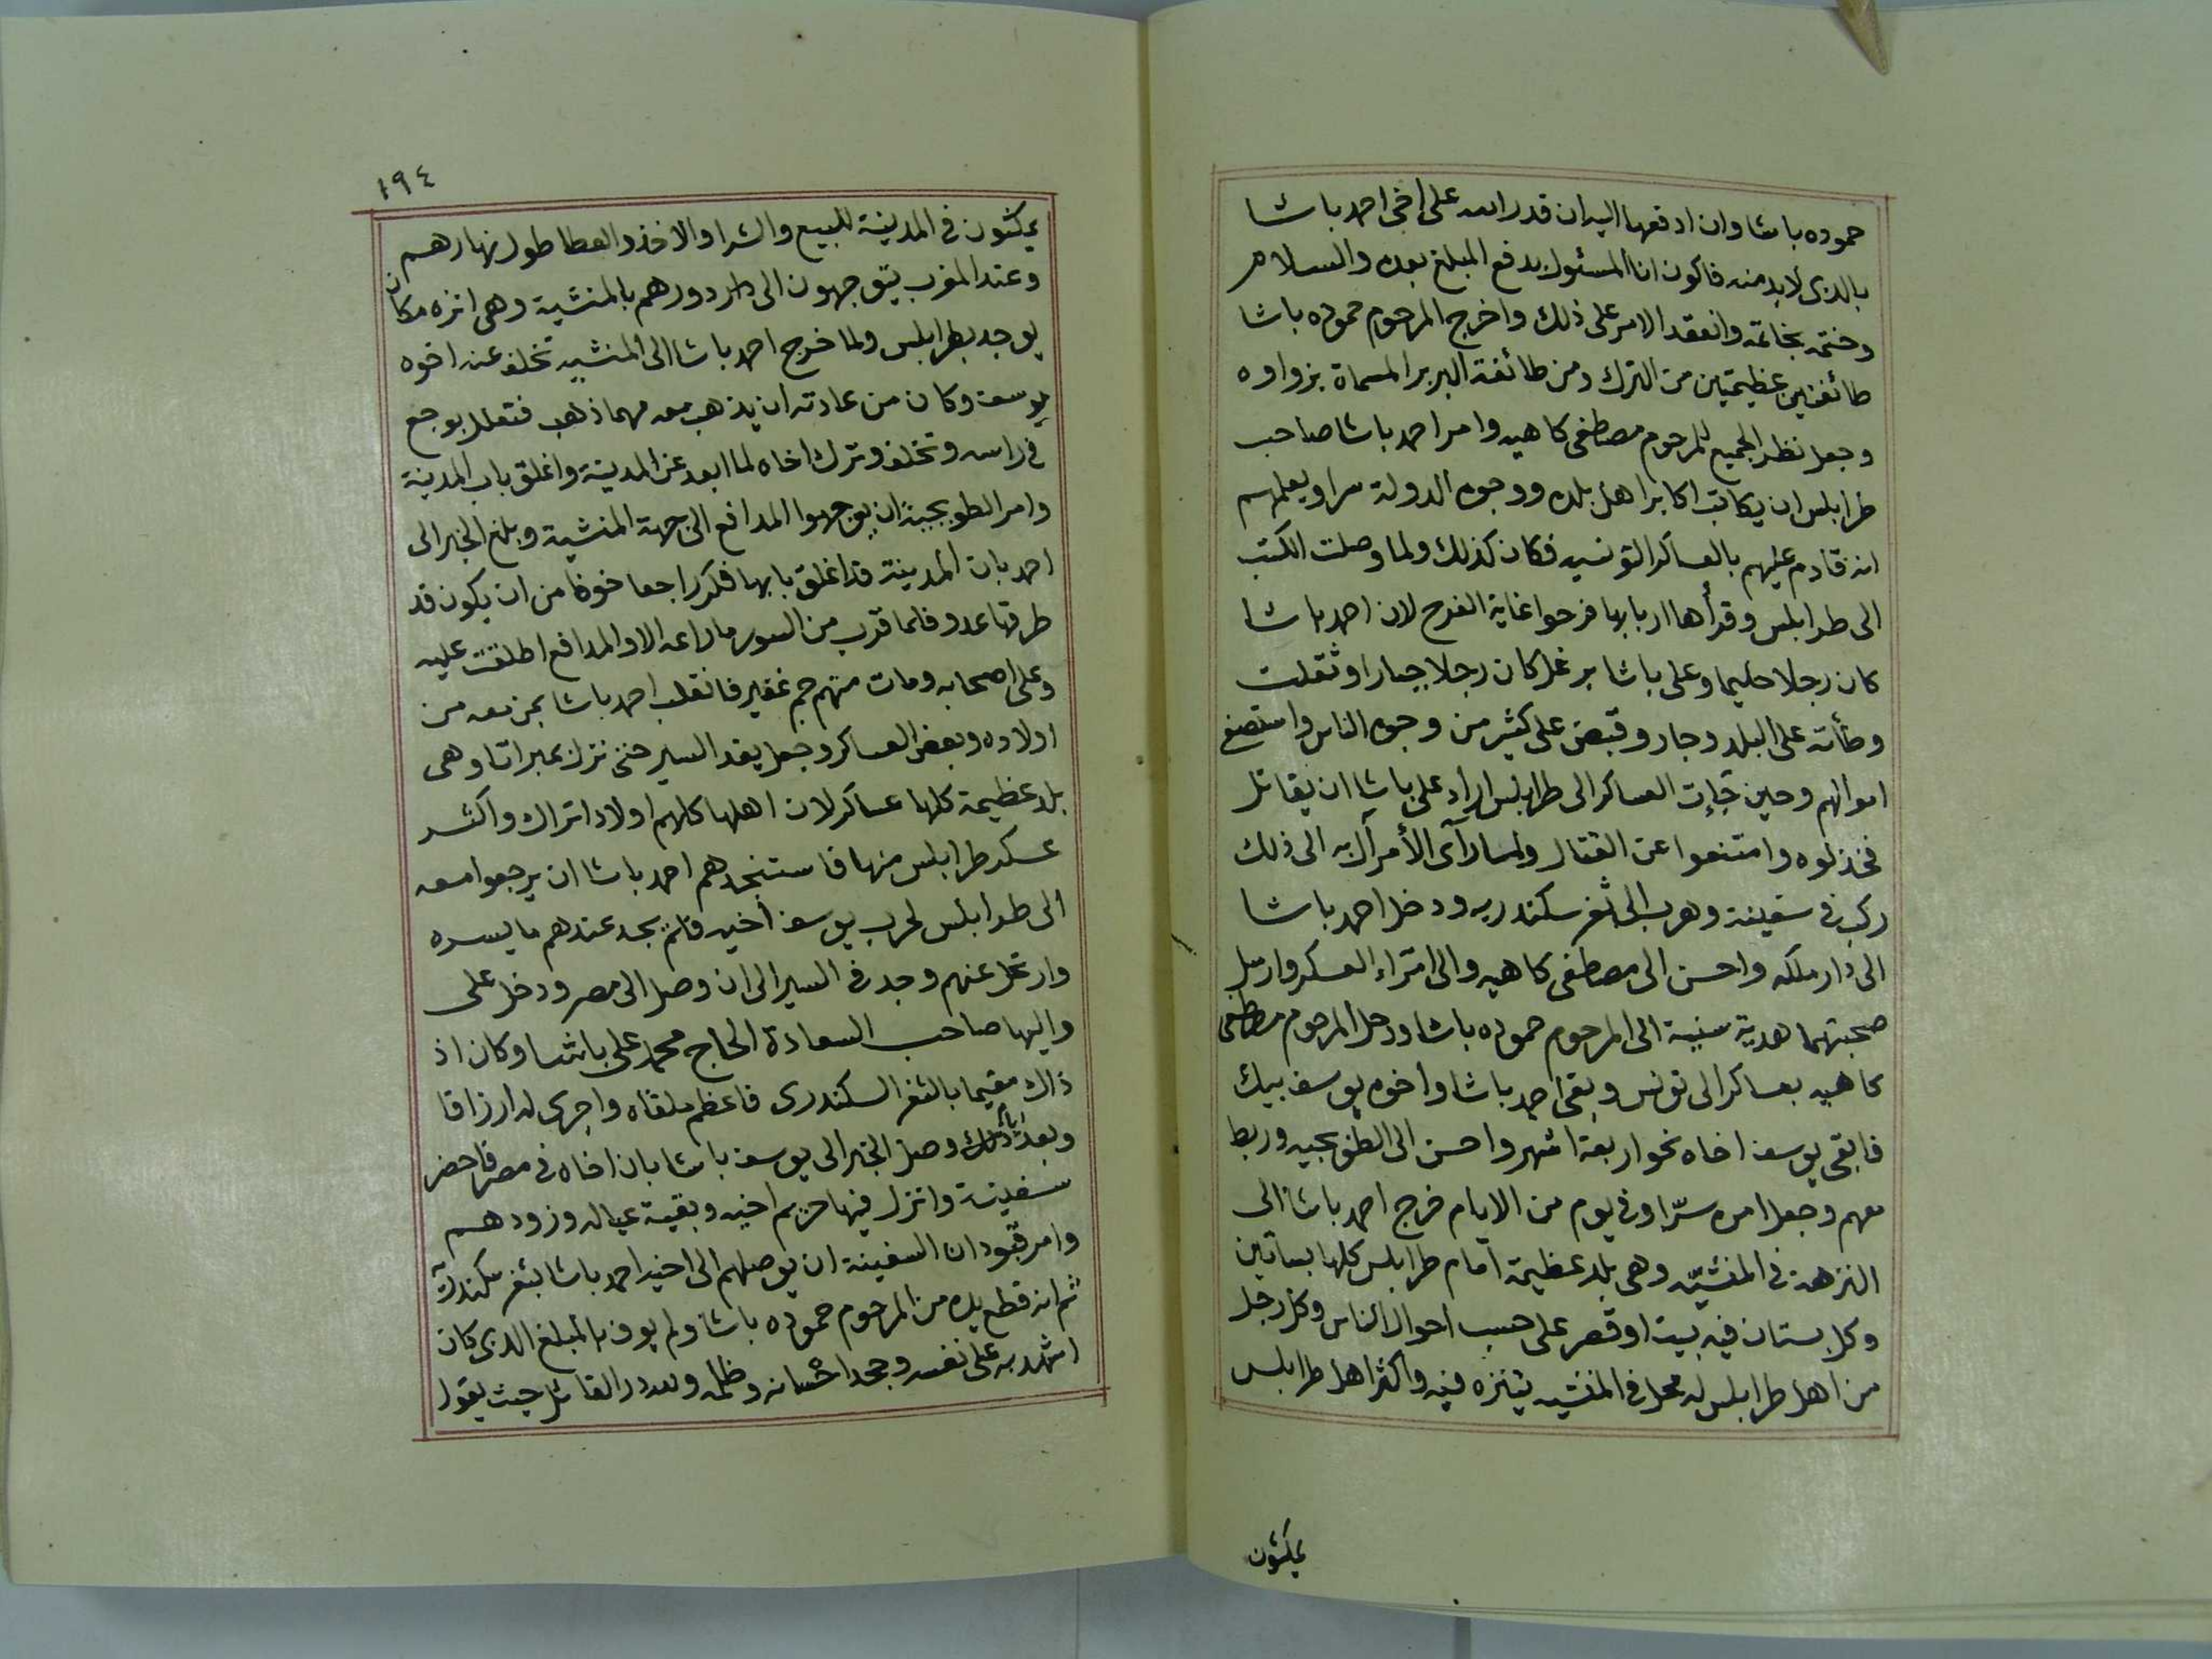 حموده باشا وان ادفعها اليه ان قدر الله على اخى احمد باشا
بالذى لابد منه فاكون انا المسئول بدفع المبلغ بعده والسلام
وختمه بخاتمه وانعقد الامر على ذلك واخرج المرحوم حموده باشا
طائفتين عظيمتين من الترك ومن طائفة البربر المسماة بزواوه
وجعل نظر الجميع للمرحوم مصطفى كاهيه وامر احمد باشا صاحب
طرابلس ان يكاتب اكابر اهل بلده ووجوه الدولة سرا ويعلمهم
انه قادم عليهم بالعساكر التونسيه فكان كذلك ولما وصلت الكتب
الى طرابلس وقرأها اربابها فرحوا غاية الفرح لان احمد باشا
كان رجلا حليما وعلى باشا برغل كان رجلا جبارا وثقلت
وطأته على البلد وجار وقبض على كثير من وجوه الناس واستصفى
اموالهم وحين جاءت العساكر الى طرابلس اراد على باشا ان يقاتل
فخذلوه وامتنعوا عن القتال ولما رآى الأمر آل به الى ذلك
ركب فى سفينة وهرب الى ثغر سكندريه ودخل احمد باشا
الى دار ملكه واحسن الى مصطفى كاهيه والى امراء العسكر وارسل
صحبتهما هدية سنية الى المرحوم حموده باشا ورحل المرحوم مصطفى
كاهيه بعساكر الى تونس وبقى احمد باشا واخوه يوسف بيك
فابقى يوسف اخاه نحو اربعة اشهر واحسن الى الطوبجيه وربط
معهم وجعل امره سرّا وفى يوم من الايام خرج احمد باشا الى
النزهة فى المنشيّه وهى بلد عظيمة امام طرابلس كلها بساتين
وكل بستان فيه بيت او قصر على حسب احوال الناس وكل رجل
من اهل طرابلس له محل فى المنشيه يتنزه فيه واكثر اهل طرابلس
يمكثون
١٩٤
يمكثون فى المدينة للبيع والشرا والاخذ والعطا طول نهارهم
وعند المغرب يتوجهون الى دورهم بالمنشية وهى انزه مكان
يوجد بطرابلس ولما خرج احمد باشا الى المنشيه تخلف عنه اخوه
يوسف وكان من عادته ان يذهب معه مهما ذهب فتعلل بوجع
فى راسه وتخلف وترك اخاه لما ابعد عن المدينة واغلق باب المدينة
وامر الطوبجية ان يوجهوا المدافع الى جهة المنشية وبلغ الخبر الى
احمد بان المدينة قد اغلق بابها فكر راجعا خوفا من ان يكون قد
طرقها عدو فلما قرب من السور ما راعه الا والمدافع اطلقت عليه
وعلى اصحابه ومات منهم جم غفير فانقلب احمد باشا بمن معه من
اولاده وبعض العساكر وجعل يغد السير حتى نزل بمبراتا وهى
بلد عظيمة كلها عساكر لان اهلها كلهم اولاد اتراك واكثر
عسكر طرابلس منها فاستنجدهم احمد باشا ان يرجعوا معه
الى طرابلس لحرب يوسف أخيه فلم يجد عندهم ما يسره
وارتحل عنهم وجد فى السير الى ان وصل الى مصر ودخل على
واليها صاحب السعادة الحاج محمد على باشا وكان اذ
ذاك مقيما بالثغر السكندرى فاعظم ملقاه واجرى له ارزاقا
وبعد ذلك وصل الخبر الى يوسف باشا بان اخاه فى مصر فاحضر
سفينة وانزل فيها حريم اخيه وبقية عياله وزودهم
وامر قبودان السفينة ان يوصلهم الى اخيه احمد باشا بثغر سكندرية
ثم انه قطع يده من المرحوم حموده باشا ولم يوف بالمبلغ الذى كان
اشهد به على نفسه وجحد احسانه وظلمه ولله در القائل حيث يقول